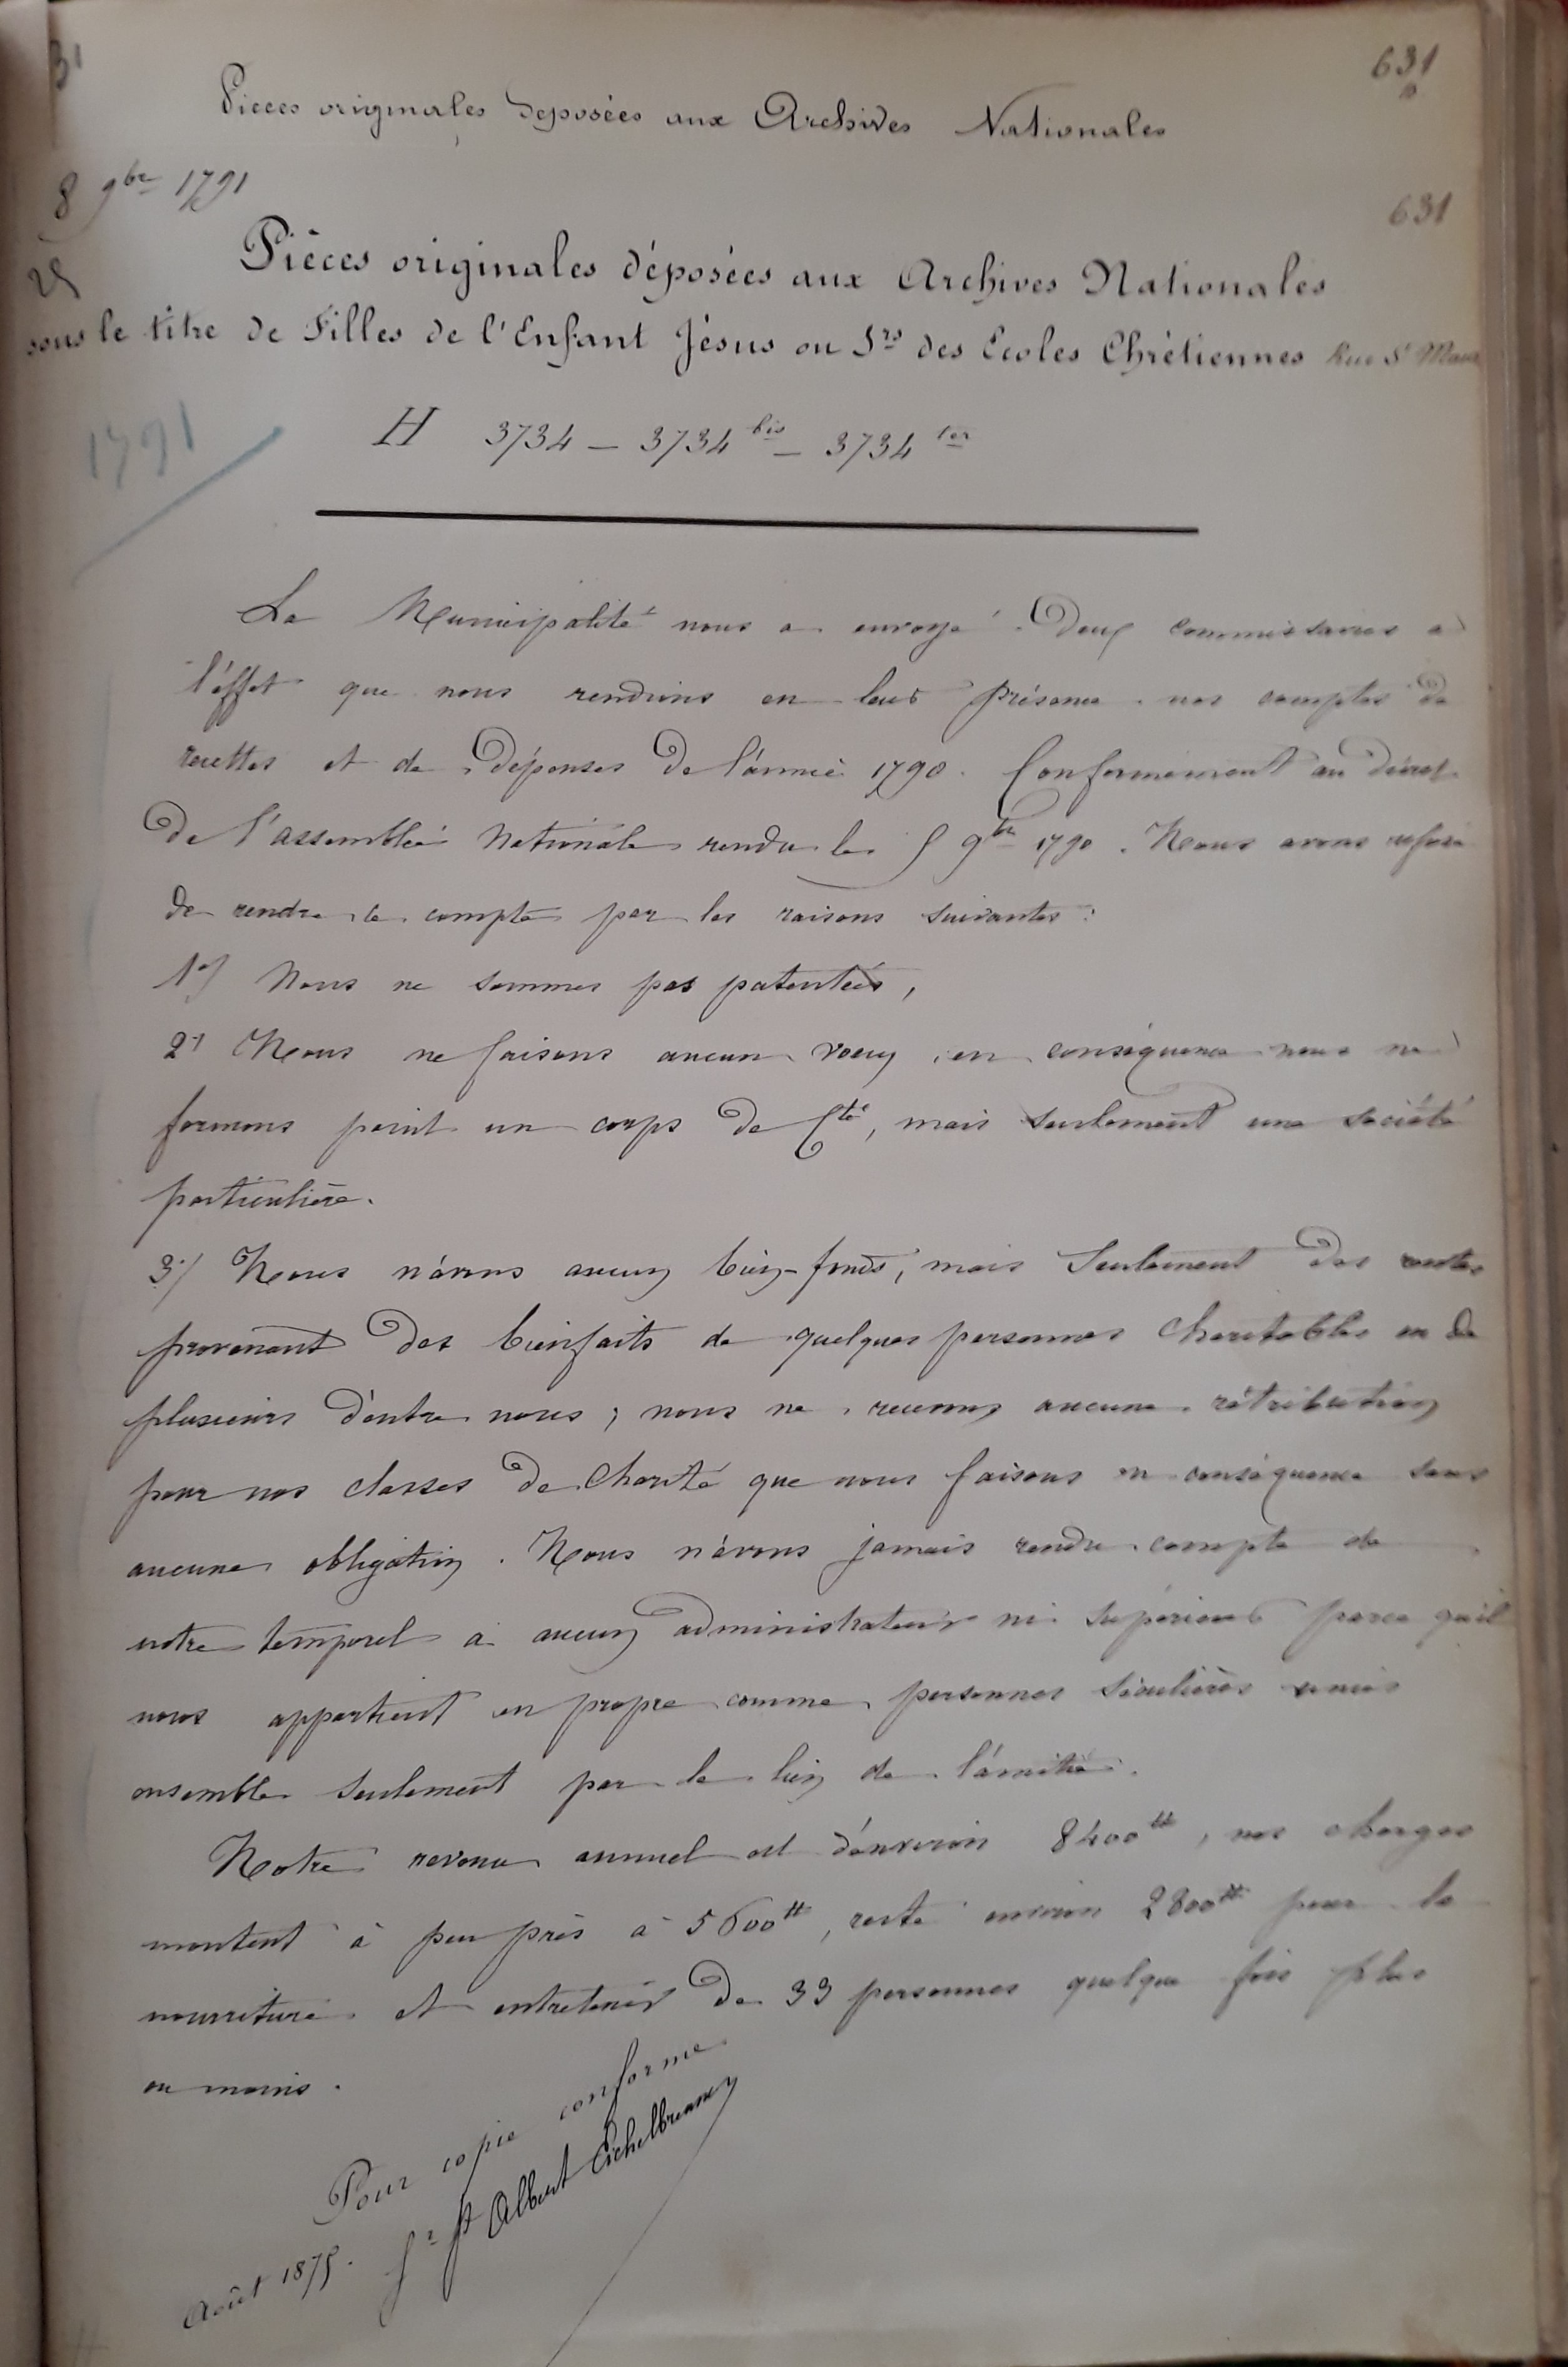 631
Pieces originales deposées aux Archives Nationales
8 9bre 1791
631
Pièces originales déposées aux Archives Nationales
sous le titre de Filles de l'Enfant Jésus ou Srs des Ecoles Chrétiennes Rue St Maur
1791
H 3734 — 3734 bis — 3734 ter
La Municipalité nous a envoyé deux commissaires à
l'éffet que nous rendions en leur présence nos comptes de
recettes et de dépenses de l'année 1790. Conformément au décret
de l'assemblée Nationale rendu le 5 9bre 1790. Nous avons refusé
de rendre ce compte par les raisons suivantes :
1º/ Nous ne sommes pas patentées,
2º Nous ne faisons aucun voeu, en conséquence nous ne
formons point un corps de Cté, mais seulement une société
particulière.
3º/ Nous n'avons aucun bien-fonds, mais seulement des rentes
provenant des bienfaits de quelques personnes charitables ou de
plusieurs d'entre nous ; nous ne recevons aucune rétribution
pour nos classes de charité que nous faisons en conséquence sans
aucune obligation. Nous n'avons jamais rendu compte de
notre temporel à aucun administrateur ni supérieur parce qu'il
nous appartient en propre comme personnes séculières unies
ensemble seulement par le lien de l'amitié.
Notre revenu annuel est d'environ 8400 tt, nos charges
montent à peu près à 5600 tt, reste environ 2800 tt pour la
nourriture et entretenir de 33 personnes quelque fois plus
ou moins.
Pour copie conforme
Sr St Albert Eichelbrenner
Août 1875.